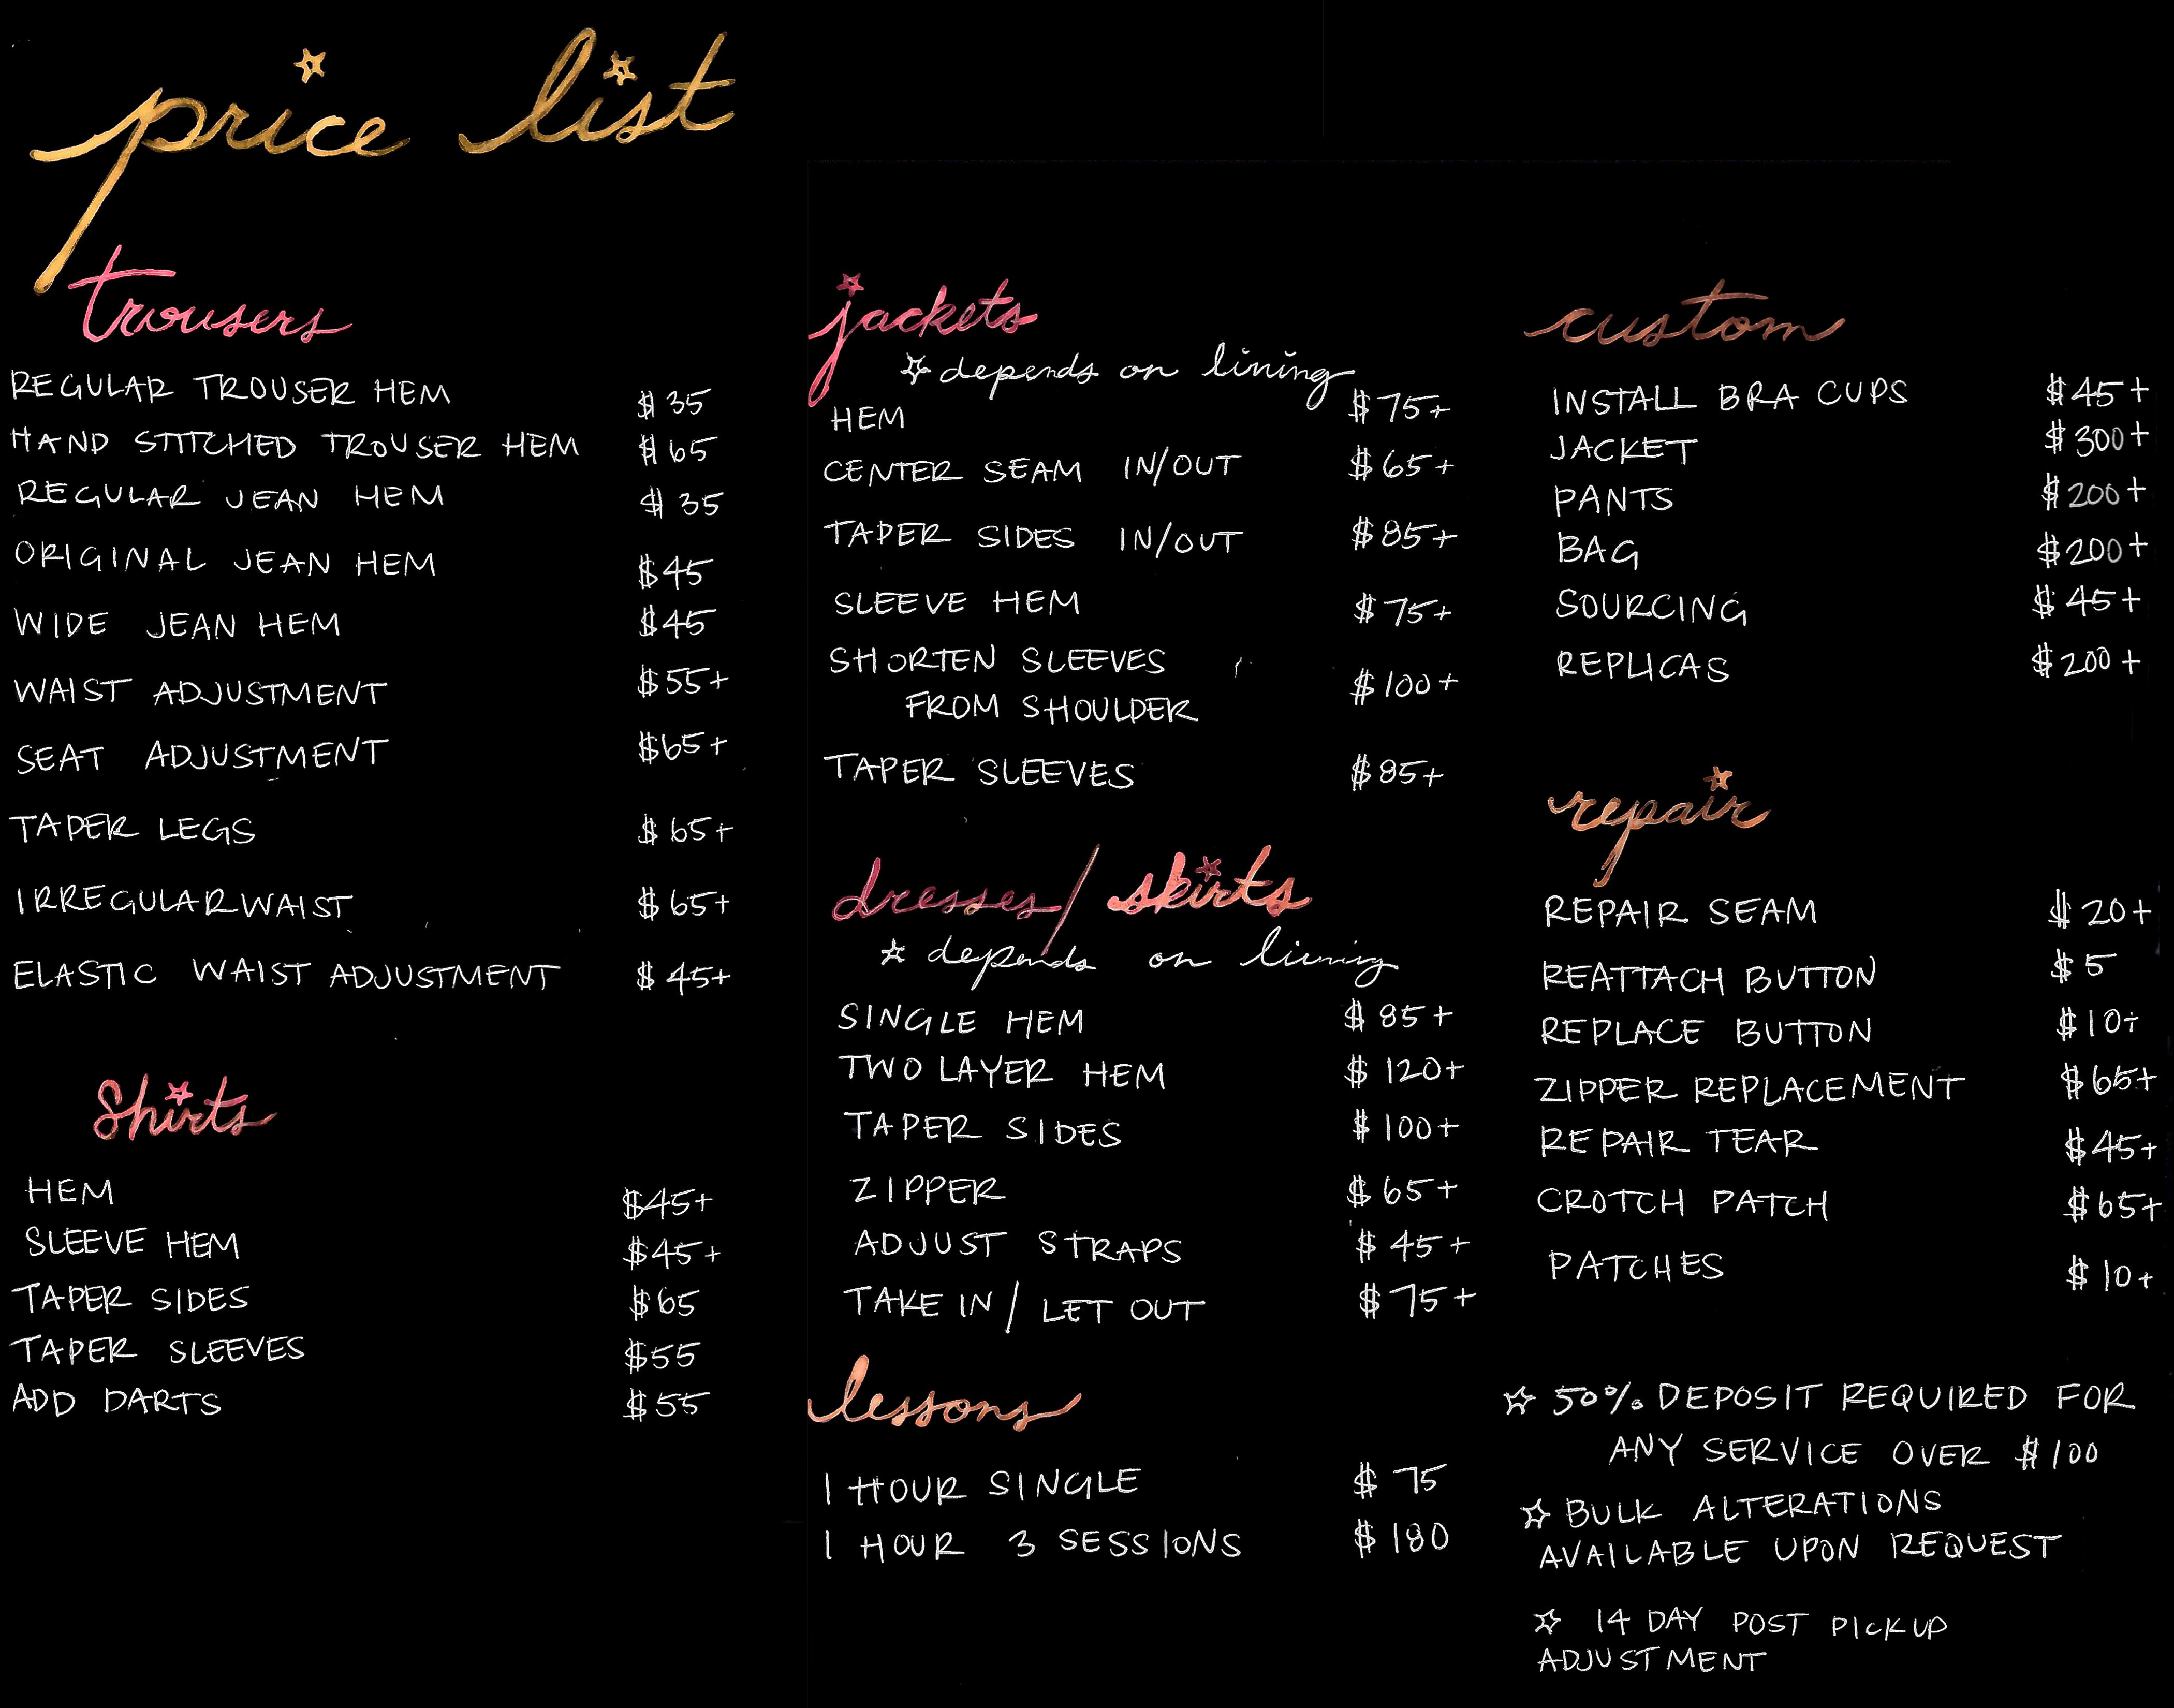 price list
trousers
REGULAR TROUSER HEM $35
HAND STITCHED TROUSER HEM $65
REGULAR JEAN HEM $35
ORIGINAL JEAN HEM $45
WIDE JEAN HEM $45
WAIST ADJUSTMENT $55+
SEAT ADJUSTMENT $65+
TAPER LEGS $65+
IRREGULAR WAIST $65+
ELASTIC WAIST ADJUSTMENT $45+
Shirts
HEM $45+
SLEEVE HEM $45+
TAPER SIDES $65
TAPER SLEEVES $55
ADD DARTS $55
jackets
☆ depends on lining
HEM $75+
CENTER SEAM IN/OUT $65+
TAPER SIDES IN/OUT $85+
SLEEVE HEM $75+
SHORTEN SLEEVES
FROM SHOULDER $100+
TAPER SLEEVES $85+
dresses/skirts
☆ depends on lining
SINGLE HEM $85+
TWO LAYER HEM $120+
TAPER SIDES $100+
ZIPPER $65+
ADJUST STRAPS $45+
TAKE IN / LET OUT $75+
lessons
1 HOUR SINGLE $75
1 HOUR 3 SESSIONS $180
custom
INSTALL BRA CUPS $45+
JACKET $300+
PANTS $200+
BAG $200+
SOURCING $45+
REPLICAS $200+
repair
REPAIR SEAM $20+
REATTACH BUTTON $5
REPLACE BUTTON $10+
ZIPPER REPLACEMENT $65+
REPAIR TEAR $45+
CROTCH PATCH $65+
PATCHES $10+
☆ 50% DEPOSIT REQUIRED FOR
ANY SERVICE OVER $100
☆ BULK ALTERATIONS
AVAILABLE UPON REQUEST
☆ 14 DAY POST PICKUP
ADJUSTMENT